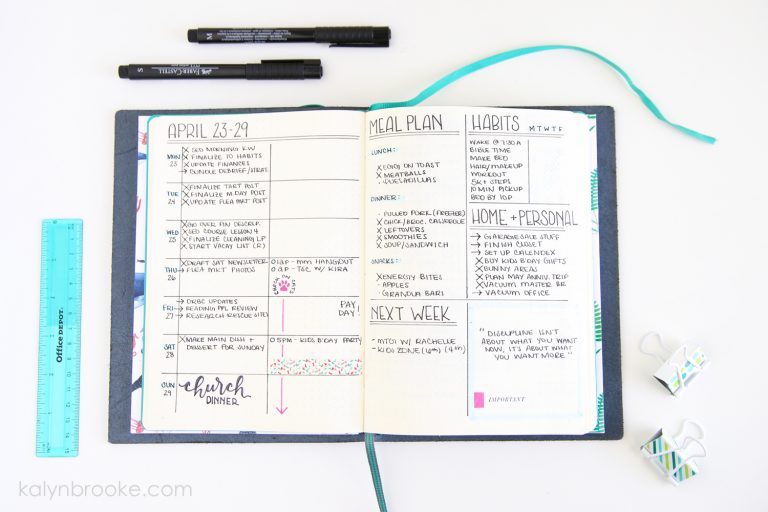 M
S FABER-CASTELL
APRIL 23-29
MON
23
X SEO MORNING KW
X FINALIZE 10 HABITS
X UPDATE FINANCES
→ BUNDLE DEBRIEF/STRAT
TUE
24
X FINALIZE TART POST
X FINALIZE M.DAY POST
X UPDATE FLEA MKT POST
WED
25
X GO OVER PIN DESCRIP.
X SEO COURSE LESSON 4
X FINALIZE CLEANING LP
X START VACAY LIST (R)
THU
26
X DRAFT SAT NEWSLETTER
→ FLEA MKT PHOTOS
MM HANGOUT
TSC W/ KIRA
FRI
27
→ ORBC UPDATES
→ READING PPL REVIEW
→ RESEARCH RESCUE SITES
PAY
DAY!
SAT
28
X MAKE MAIN DISH +
DESSERT FOR SUNDAY
05PM - KIDS B'DAY PARTY
SUN
29
church
DINNER
MEAL PLAN
LUNCH:
X EGG ON TOAST
X MEATBALLS
- QUESADILLAS
DINNER:
- PULLED PORK (FREEZER)
X CHICK/BROC. CASSEROLE
X LEFTOVERS
X SMOOTHIES
X SOUP/SANDWICH
SNACKS:
X ENERGY BITES
- APPLES
- GRANOLA BARS
NEXT WEEK
- MTG W/ RACHELLE
- KIDS ZONE
HABITS M T W T F
WAKE @ 7:30A
BIBLE TIME
MAKE BED
HAIR/MAKEUP
WORKOUT
5K+ STEPS
10 MIN PICKUP
BED BY 10P
HOME + PERSONAL
→ GARAGE SALE STUFF
→ FINISH CLOSET
→ SET UP CALENDEX
X BUY KIDS B'DAY GIFTS
X BUNNY AREAS
X PLAN MAY ANNIV. TRIP
X VACUUM MASTER BR
→ VACUUM OFFICE
"DISCIPLINE ISN'T
ABOUT WHAT YOU WANT
NOW, IT'S ABOUT WHAT
YOU WANT MORE"
IMPORTANT
Office DEPOT
kalynbrooke.com